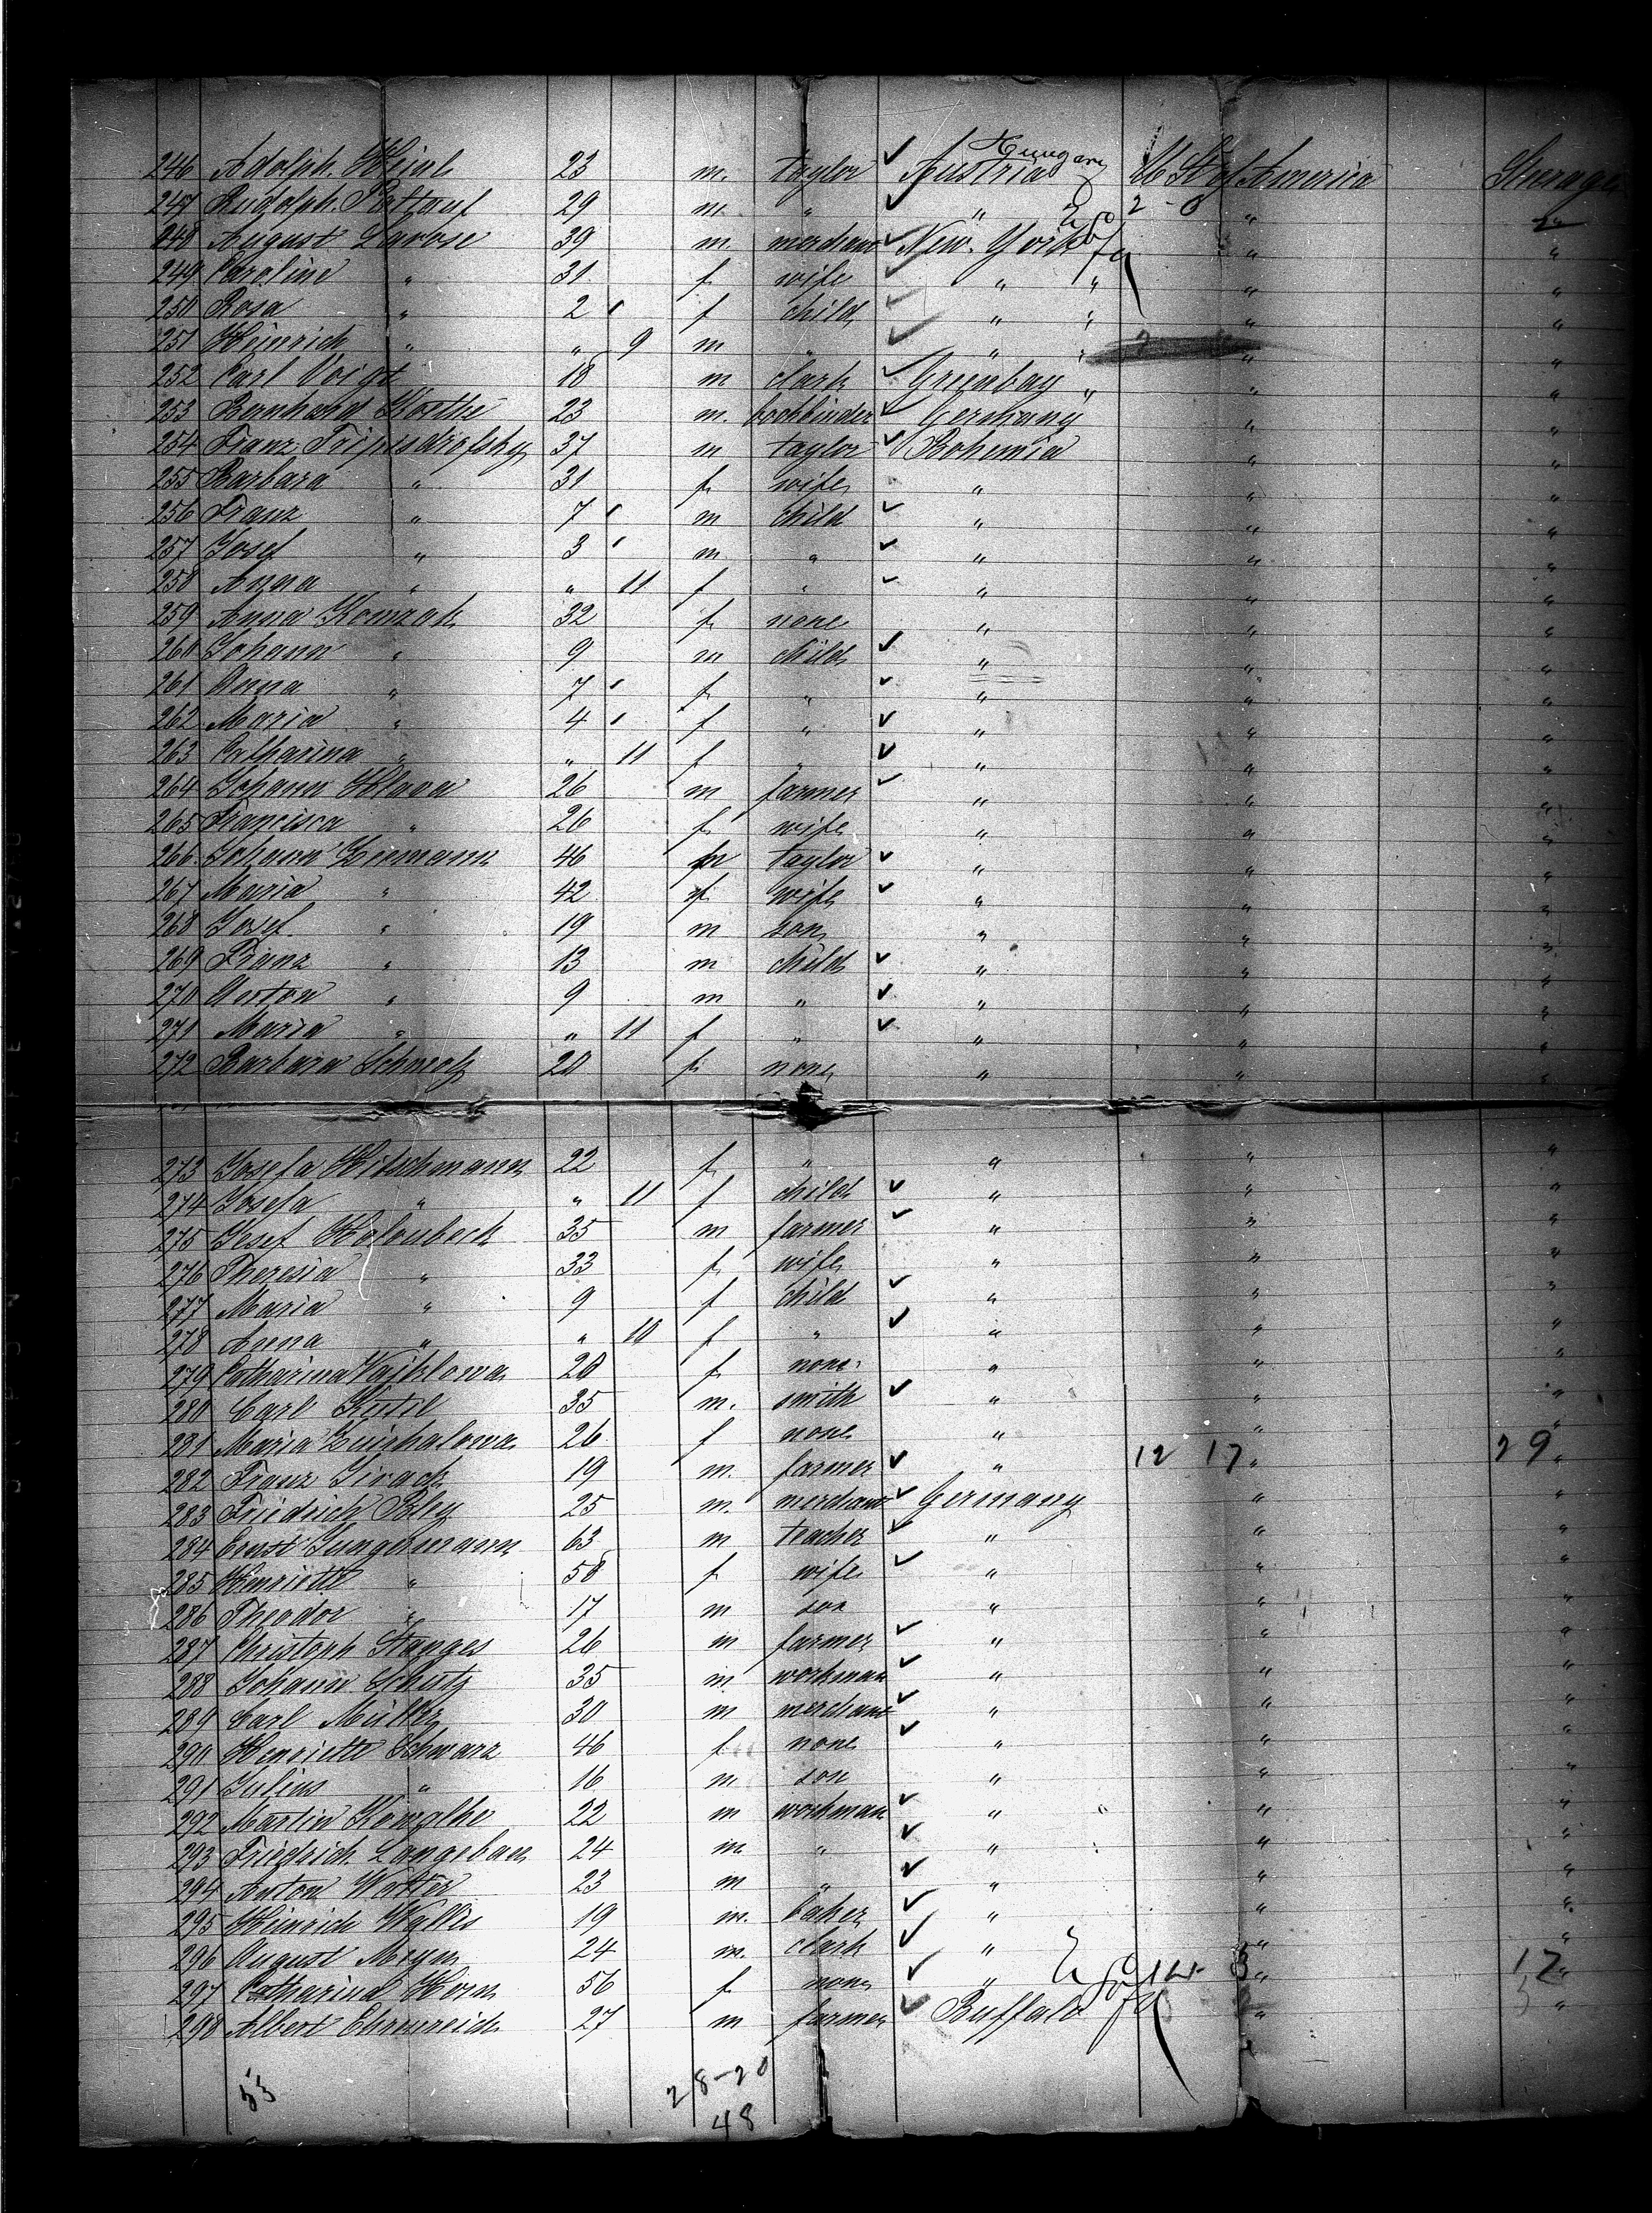 Hungary
246 Adolph. Heinl 23 m. taylor ✓ Austria U St of America Steerage
247 Rudolph. Pottauf 29 m. " ✓ " 2 - 0 " "
248 August Larose 39 m. merchant ✓ New. York " "
249 Caroline " 31 f. wife ✓ " " " "
250 Rosa " 2 f child ✓ " " " "
251 Heinrich " " 9 m " ✓ " " " "
252 Carl Voigt 18 m clark ✓ Greenbay " " "
253 Bernhard Kothe 23 m. bookbinder ✓ Germany " "
254 Franz 37 m taylor ✓ Bohemia " "
255 Barbara " 31 f. wife " " "
256 Franz " 7 m child ✓ " " "
257 Josef " 3 m " ✓ " " "
258 Anna " " 11 f " ✓ " " "
259 Anna Komzak 32 f. none " " "
260 Johann " 9 m child ✓ " " "
261 Anna " 7 f. " ✓ " " "
262 Maria " 4 f " ✓ " " "
263 Catharina " " 11 f " ✓ " " "
264 Johann Hlava 26 m farmer ✓ " " "
265 Francisca " 26 f. wife " " "
266. Johann 46 m taylor ✓ " " "
267 Maria " 42 f. wife ✓ " " "
268 Josef " 19 m son " " "
269 Franz " 13 m child ✓ " " "
270 Anton " 9 m " ✓ " " "
271 Maria " " 11 f " ✓ " " "
272 Barbara 20 f. none " " "
273 Josefa Hitschmann 22 f. " " " "
274 Josefa " " 11 f child ✓ " " "
275 Josef Holoubeck 35 m farmer ✓ " " "
276 Theresia " 33 f. wife " " "
277 Maria " 9 f child ✓ " " "
278 Anna " " 10 f " ✓ " " "
279 Catharina 20 f. none. " " "
280 Carl Kutil 35 m. smith ✓ " " "
281 Maria 26 f none " " "
282 Franz Jirack 19 m. farmer ✓ " 12 17 " 29 "
283 Friedrich Bley 25 m. merchant ✓ Germany " "
284 Ernst Jungermann 63 m teacher ✓ " " "
285 Henriette " 58 f. wife ✓ " " "
286 Theodor " 17 m son " " "
287 Christoph Stanges 26 m farmer ✓ " " "
288 Johann Schutz 35 m. workman ✓ " " "
289 Carl Müller 30 m merchant ✓ " " "
290 Henriette Schwarz 46 f. none ✓ " " "
291 Julius " 16 m. son " " "
292 Martin 22 m workman ✓ " " "
293 Friedrich 24 m " ✓ " " "
294 Anton Walter 23 m " ✓ " " "
295 Heinrich Wallis 19 m. baker ✓ " " "
296 August Meyer 24 m. clark ✓ " " "
297 Catharina Horn 56 f. none ✓ " 14 3 " 17 "
298 Albert Ehrenreich 27 m farmer ✓ Buffalo " "
53
28-20
48